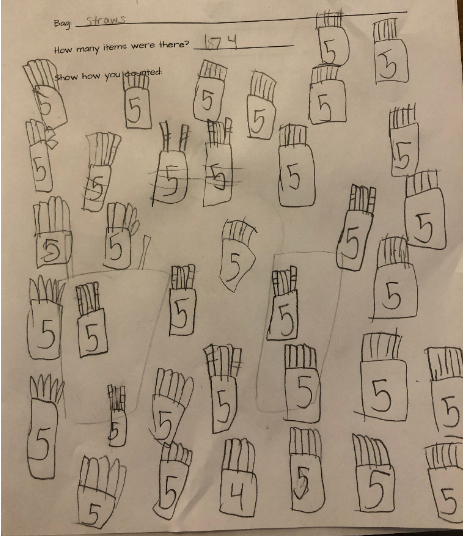 Bag: Straws
How many items were there? 174
Show how you counted:
5 5
5 5 5 5 5
5 5 5 5 5 5
5 5 5 5 5
5 5 5 5 5
5 5 5 5 5 5 5
5 5 4 5 5 5